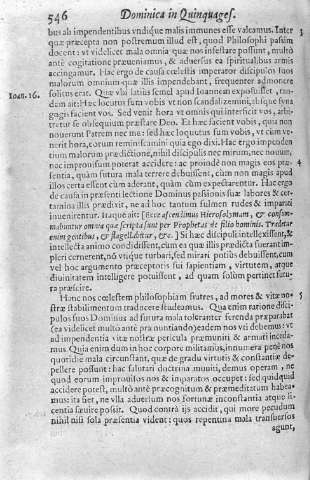 546 Dominica in Quinquages.
bus ab impendentibus vndique malis immunes esse valeamus. Inter 3
quæ præcepta non postremum illud est, quod Philosophi passim
docent: vt videlicet mala omnia quæ nos infestare possunt, multò
antè cogitatione præueniamus, & aduersus ea spiritalibus armis
accingamur. Hac ergo de causa cœlestis imperator discipulos suos
malorum omnium quæ illis impendebant, frequenter admonere
Ioan. 16. solitus erat. Quæ vbi latiùs semel apud Ioannem exposuisset, tan-
dem ait: Hæc locutus sum vobis vt non scandalizemini, absque syna
gogis facient vos. Sed venit hora vt omnis qui interficit vos, arbi-
tretur se obsequium præstare Deo. Et hæc facient vobis, quia non
nouerunt Patrem nec me: sed hæc locutus sum vobis, vt cùm ve-
nerit hora, eorum reminiscamini quia ego dixi. Hac ergo impenden
tium malorum prædictione, nihil discipulis nec mirum, nec nouum,
nec improuisum poterat accidere: ac proinde non magis eos præ- 4
sentia, quàm futura mala terrere debuissent, cùm non magis apud
illos certa essent cùm aderant, quàm cùm expectarentur. Hac ergo
de causa in præsenti lectione Dominus passionis suæ labores & cer-
tamina illis prædixit, ne ad hoc tantum fulmen rudes & imparati
inuenirentur. Itaque ait: [Ecce ascendimus Hierosolymam, & consum-
mabuntur omnia quæ scripta sunt per Prophetas de filio hominis. Tradetur
enim gentibus, & flagellabitur, &c.] Si hæc discipuli intellexissent, &
intellecta animo condidissent, cùm ea quæ illis prædicta fuerant im-
pleri cernerent, nō vtique turbari, sed mirari potiùs debuissent, cùm
vel hoc argumento præceptoris sui sapientiam, virtutem, atque
diuinitatem intelligere potuissent, ad quam solùm pertinet futu-
ra præscire.
Hanc nos cœlestem philosophiam fratres, ad mores & vitæ no- 5
stræ stabilimentum traducere studeamus. Qua enim ratione disci-
pulos suos Dominus ad futura mala toleranter ferenda præparabat
(ea videlicet multò antè prænuntiando) eadem nos vti debemus: vt
ad impendentia vitæ nostræ pericula præmuniti & armati inceda-
mus. Quia enim dum in hoc corpore militamus, innumera penè nos
quotidie mala circunstant, quæ de gradu virtutis & constantiæ de-
pellere possunt: hac salutari doctrina muniti, demus operam, ne
quod eorum improuisos nos & imparatos occupet: sed quidquid
accidere potest, multò antè præcognitum & præmeditatum habea-
mus: ita fiet, ne vlla aduersum nos fortunæ inconstantia atque li-
centia sæuire possit. Quod contrà ijs accidit, qui more pecudum
nihil nisi sola præsentia vident: quos repentina mala transuersos
agunt,